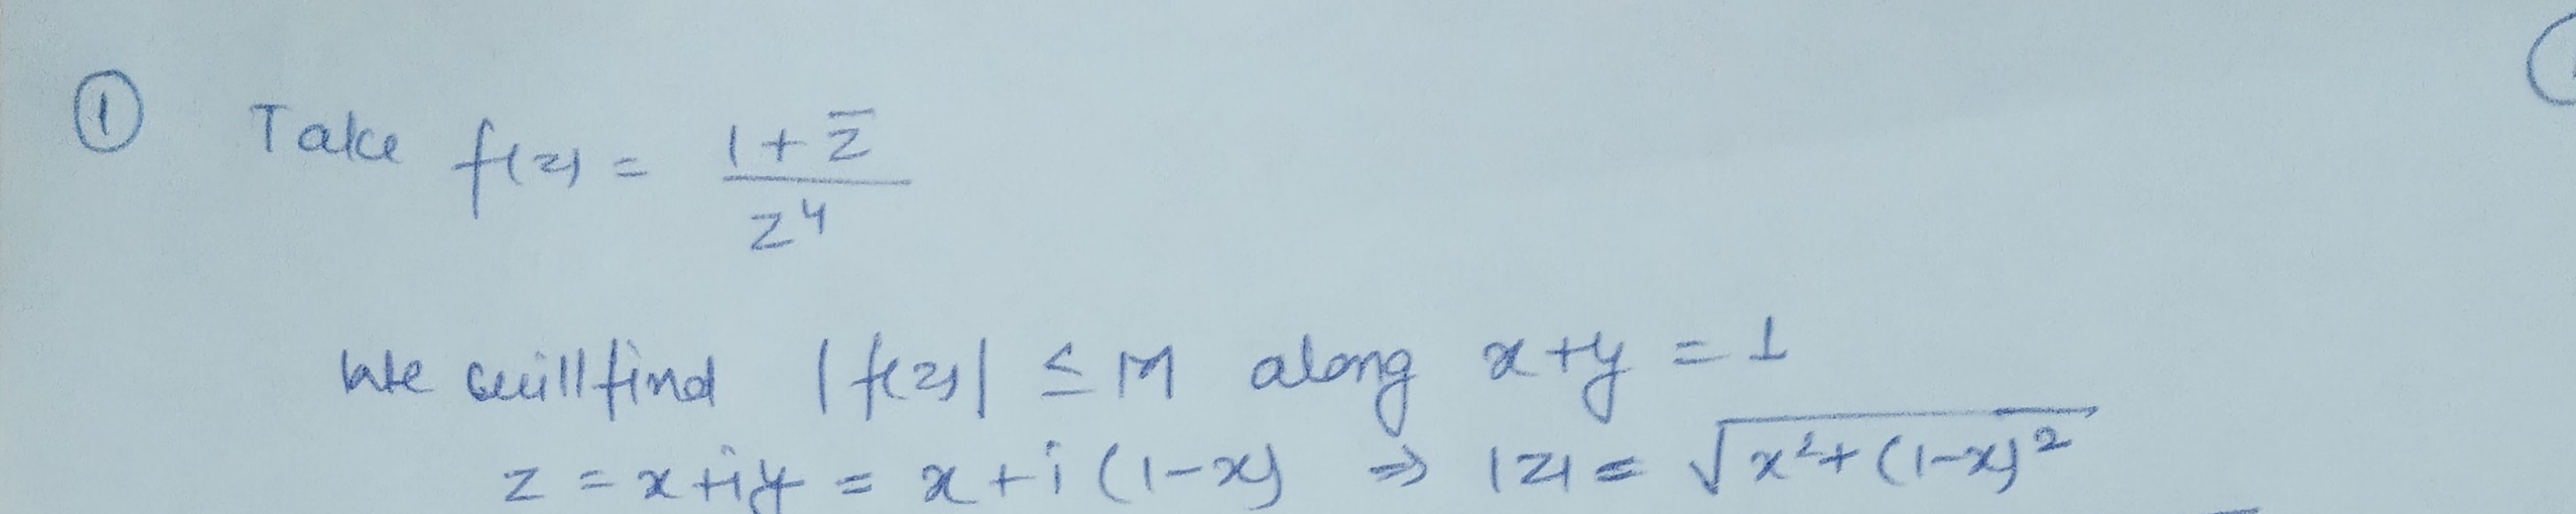 ① Take f(z) = (1 + z̅) / z⁴
We will find |f(z)| ≤ M along x+y = 1
z = x+iy = x+i(1-x) ⇒ |z| = √(x²+(1-x)²)